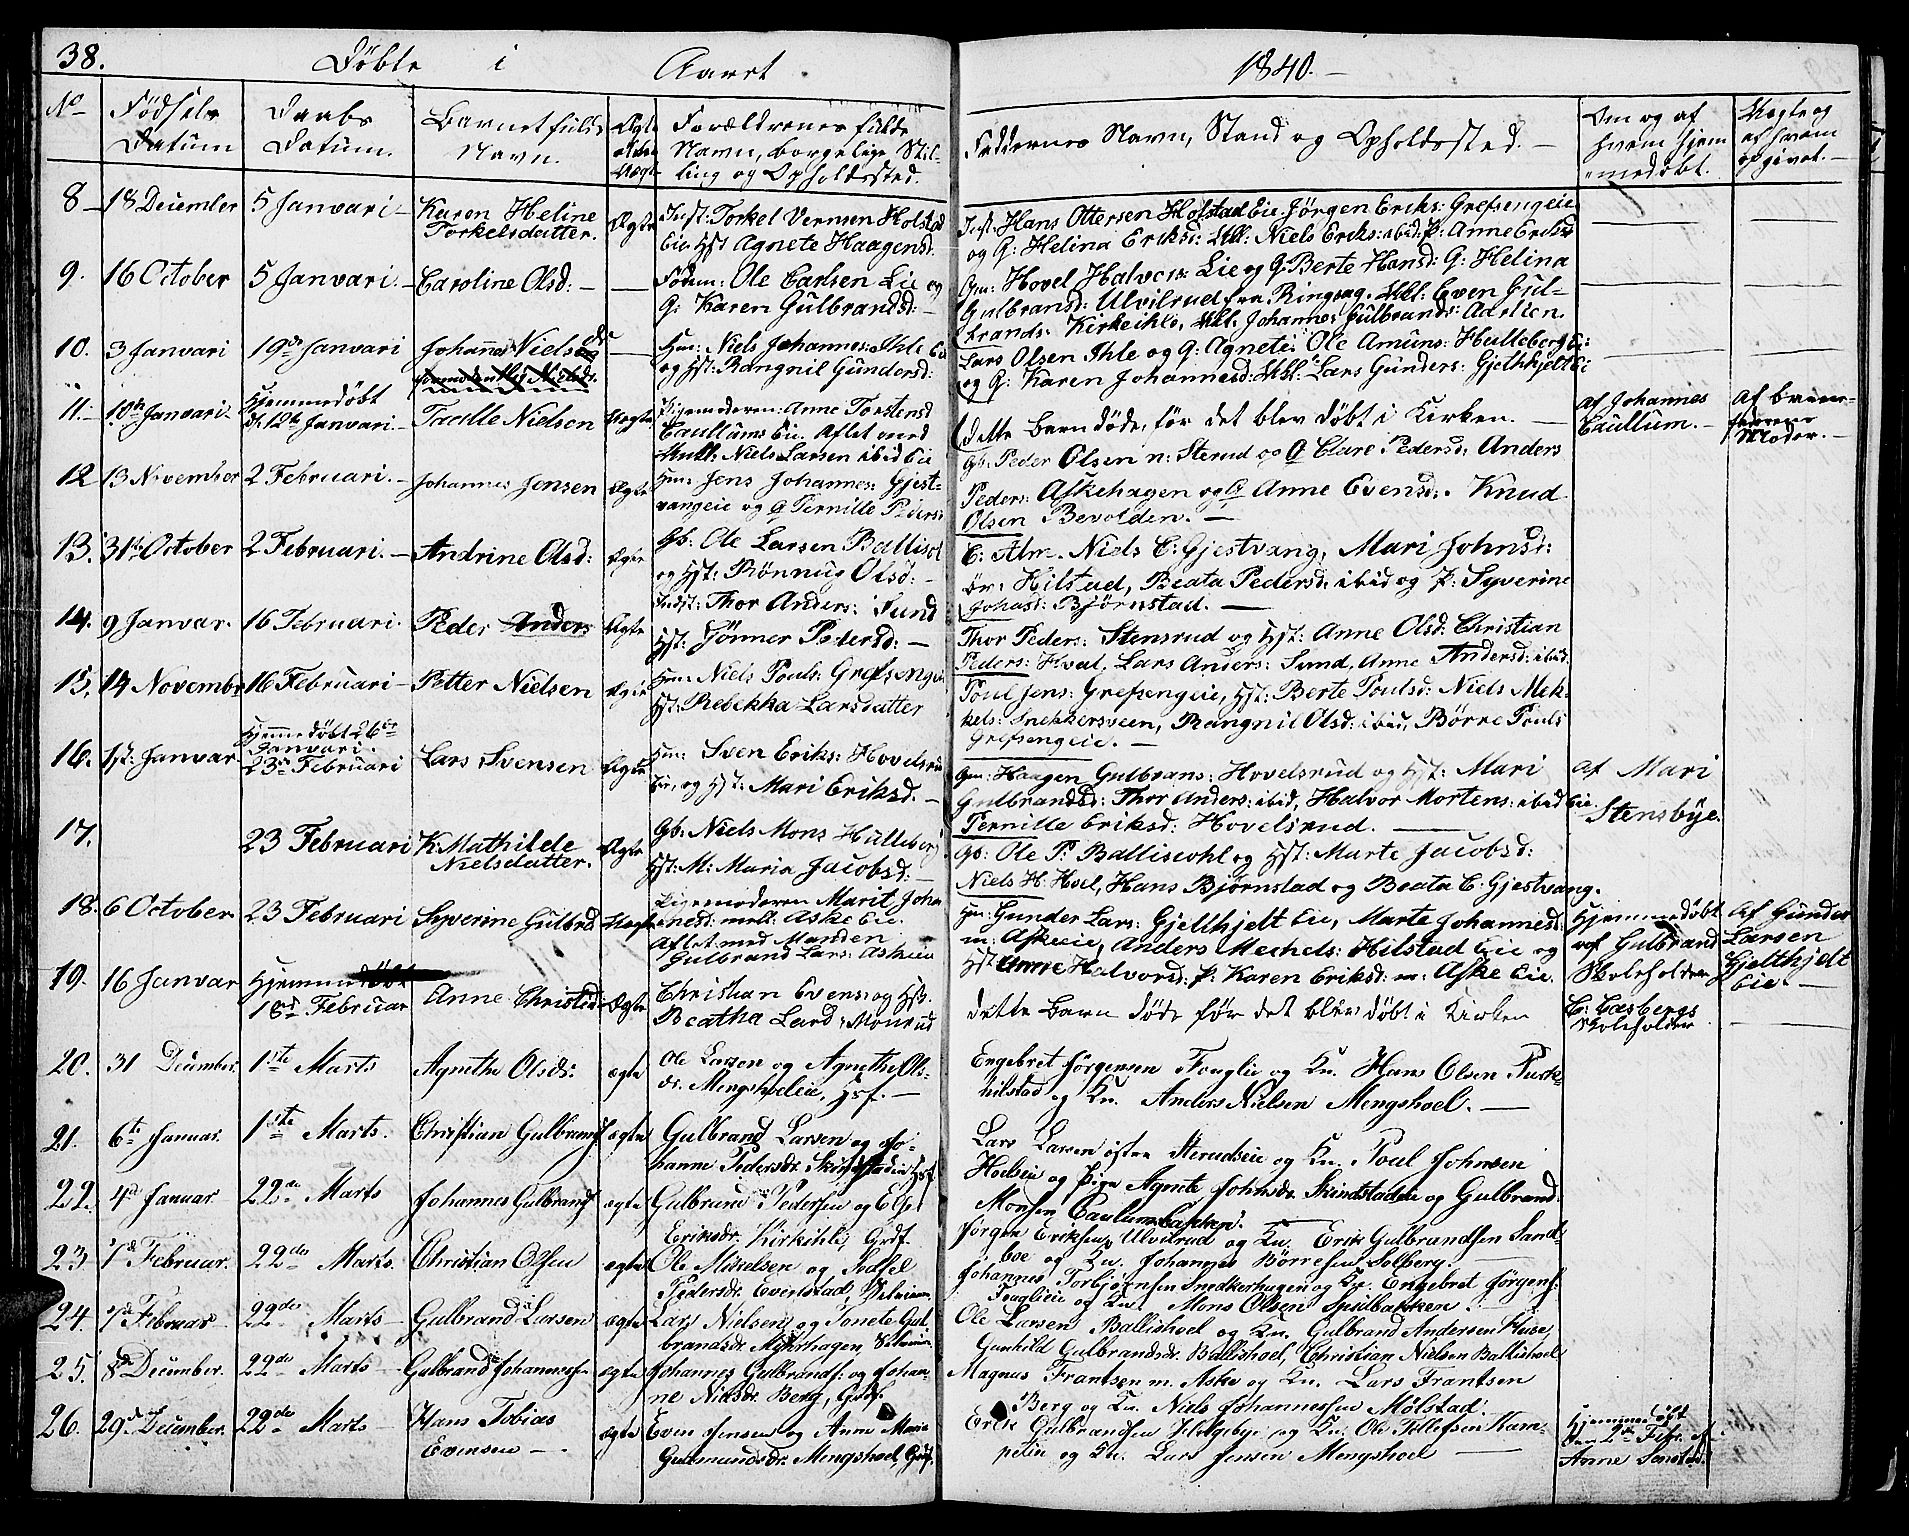 38. Døbte i Aaret 1840. –
No Fødsels Datum
Daabs Datum.
Barnets fulde Navn.
Ægte eller Uægte
Forældrenes fulde Navn, borgelige Stilling og Opholdssted.
Faddernes Navn, Stand og Opholdssted. –
Om og af hvem hjemmedøbt.
Uægte og af hvem opgivet. –
8 – 18 December 5 Januari – Karen Heline Torkelsdatter. Ægte
Inst: Torkel Vernsen Holstad
Eie Hst Agnete Haagensd:
Inst: Hans Ottersen Hofstad Eie. Jörgen Eriks: Grefsengeie
og G: Helina Eriksd: Ukl: Niels Eriks: ibid: P: Anne Eriksd
9. 16 October 5 Januari. – Caroline Olsd: –
Ole Carlsen Lie og
G: Karen Gulbrandsd: –
Gm: Hovel Halvors: Lie og G: Berte Hansd: G: Helina
Gulbransd: Ulvilrud fra Ringsag. Ukl: Even Gul-
brands: Kirkeihle, Ukl. Johannes Gulbrands: Adelien.
10. 3 Januari 19de Januari Johannes Niels
Hm: Niels Johannes: Ihle Eie
og Hst: Rangnil Gundersd:
Lars Olsen Ihle og G: Agnete: Ole Amuns: Hulleberg Ei:
og G: Karen Johannesd: Ukl: Lars Gunders: Gjelthjelt Ei
11. – 10de Januari – Hjemmedøbt d. 12te Januari. – Taalle Nielsen Uægte
Pigemoderen: Anne Torstensd
Caullums Eie. Aflet med
Ukl: Niels Larsen ibid Eie
dette Barn döde, før det blev døbt i Kirken. –
af Johannes Caullum. –
Af barne- Moder. –
12 13 November 2 Februari. – Johannes Jensen Ægte
Hm: Jens Johannes: Gjest-
vangeie og G Pernille Peders:
Gb: Peder Olsen n: Sterud og G Clare Pedersd: Anders
Peders: Askehagen og G Anne Evensd:. Knud
Olsen Bevolden. –
13. 31te October 2 Februari. – Andrine Olsd: Ægte
Gb: Ole Larsen Ballishol
og Hst: Rønnug Olsd: –
E: Alm. Niels C: Gjestvang, Mari Johnsd:
ør: Hilstad, Beata Pedersd: ibid og P: Syverine
Johasd: Bjørnstad. –
14. 9 Januar. 16 Februari. Peder Anders Ægte
Indst: Thor Anders: Sund
Hst: Jönner Pedersd: –
Thor Peders: Stensrud og Hst: Anne Olsd: Christian
Peders: Hvel, Lars Anders: Sund, Anne Andersd: ibid.
15. 14 Novembr 16 Februari – Petter Nielsen Ægte
Hm: Niels Pouls: Grefsengei
Hst: Rebekka Larsdatter
Poul Jens: Grefsengeie, Hst: Berte Poulsd: Niels Mek-
kels: Snekkersveen, Rangnil Olsd: ibid, Børre Pouls
Grefsengeie. –
16. 1st: Januar. Hjemmedöbt 26de Januari. 23de Februari Lars Svensen Ægte
Hm: Sven Eriks: Hovelsrud
Eie, og Hst: Mari Eriksd. –
Gm: Haagen Gulbrans: Hovelsrud og Hst: Mari
Gulbrandsd: Thor Anders: ibid, Halvor Mortens: ibid Eie.
Pernille Eriksd: Hovelsrud. –
af Mari Stensbye.
17. 23 Februari K: Mathilde Nielsdatter. Ægte
Gb: Niels Mons Hulleberg
Hst: M: Maria Jacobsd: –
Gb: Ole P: Ballishohl og Hst: Marte Jacobsd:
Niels H: Hoel, Hans Bjørnstad og Beata C: Gjestvang.
18. 6 October 23 Februari Syverine Gulbrd Uægte
Pigemoderen Marit Joha
nnesd: mell: Aske Eie.
Aflet med Manden
Gulbrand Lars: Askeie
Hm: Gunder Lars: Gjellhjelt Eie, Marte Johannesd:
m: Askeie, Anders Mechels: Hilstad Eie og
Hst: Anne Halvorsd: P: Karen Eriksd: m: Aske Eie.
Hjemmedøbt af Gulbrand Skoleholder
Af Gunder Larsen Gjelthjelt Eie. –
19. 16 Januar Hjemmedöbt 18de Februar Anne Christid: Ægte
Christian Evens: og Hst:
Beatha Larsd: Monrud
dette Barn döde før det blev døbt i Kirken
C: Casbergs Skoleholder
20. 31 December. 1ste Marts Agnethe Olsdr: ægte
Ole Larsen og Agnethe Ols-
dr. Mengshoeleie, Hsf. –
Engebret Jørgensen Fouglie og Ku. Hans Olsen Rusk-
hilstad og Ku. Anders Nielsen Mengshoel. –
21. 6te Januar. 1ste Marts. Christian Gulbrands. ægte
Gulbrand Larsen og Jo-
hanne Pedersdr. Skindstadeie Hsf.
Lars Larsen østre Sterudseie og Ku. Poul Johnsen
Hoelseie og Pige Agnete Johnsdr. Skindstadeie og Gulbrand
Monsen Caulumsbakken. –
22. 4de Januar 22de Marts Johannes Gulbrands. ægte
Gulbrand Pedersen og Else
Eriksdr. Kirkihle, Grdf.
Jörgen Eriksen, Ulvilrud og Ku. Erik Gulbrandsen Sand-
boe og Ku. Johannes Börresen Solberg. –
23 7de Februar. 22de Marts. Christian Olsen ægte
Ole Mikelsen og Sidsel
Pedersdr. Evenstad, Selveiere.
Johannes Torbjørnsen Snedkerhagen og Ku. Engebret Jörgens:
Fouglieie og Ku. Mons Olsen Spidlbakken. –
24. 7de Februar 22de Marts – Gulbrand Larsen ægte
Lars Nielsen og Tonete Gul-
brandsdr. Myhrhagen, Selveiere
Ole Larsen Ballishoel og Ku. Gulbrand Andersen Huse,
Gunhild Gulbrandsdr. Ballishoel, Christian Nielsen Ballishoel
25. 8de December. 22de Marts Gulbrand Johannessen ægte
Johannes Gulbrands: og Johan-
ne Nielsdr. Berg, Grdf.
Magnus Frantsen m. Aske og Ku. Lars Frantsen
Berg og Ku. Niels Johannessen Molstad.
26. 29de December. 22de Marts Hans Tobias Evensen – ægte
Even Jensen og Anne Marie
Gudmundsdr. Mengshoel, Grdf.
Erik Gulbrandsen Helgebye og Ku. Ole Tollefsen Kam-
pelin og Ku. Lars Jensen Mengshoel –
Hjemmedøbt den 2de Febr. af Anne Sonstad